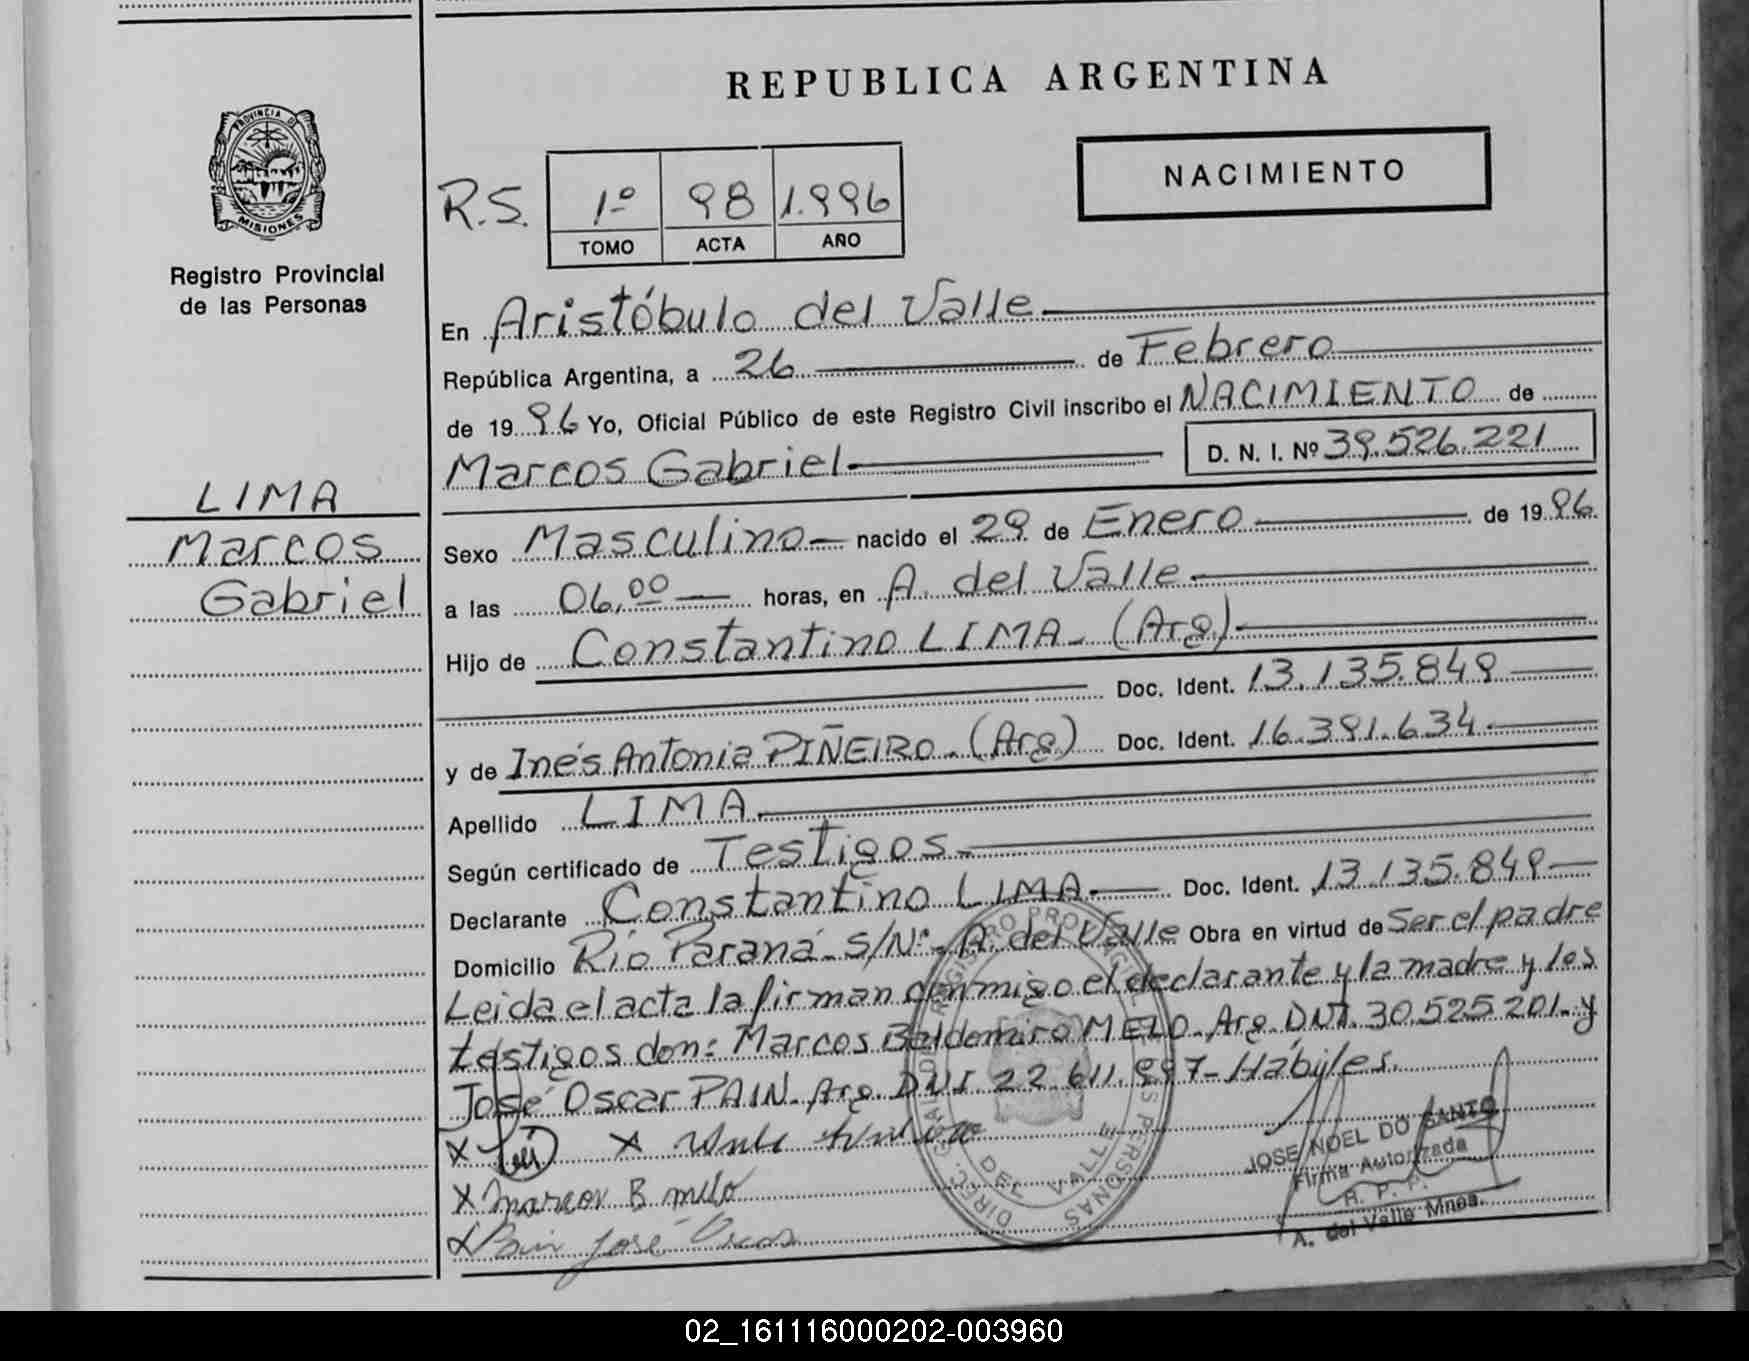 REPUBLICA ARGENTINA
PROVINCIA DE
MISIONES
Registro Provincial
de las Personas
NACIMIENTO
R.S. 1º 98 1.996
TOMO ACTA AÑO
En Aristóbulo del Valle
República Argentina, a 26 de Febrero
de 19 96 Yo, Oficial Público de este Registro Civil inscribo el NACIMIENTO de
Marcos Gabriel D. N. I. Nº 39.526.221
LIMA
Marcos
Gabriel
Sexo Masculino nacido el 29 de Enero de 19 96
a las 06,00 horas, en A. del Valle
Hijo de Constantino LIMA - (Arg)
Doc. Ident. 13.135.849
y de Inés Antonia PIÑEIRO - (Arg) Doc. Ident. 16.391.634
Apellido LIMA
Según certificado de Testigos
Declarante Constantino LIMA Doc. Ident. 13.135.849
Domicilio Río Paraná - S/Nº - A. del Valle Obra en virtud de Ser el padre
Leida el acta la firman conmigo el declarante y la madre y los
testigos don: Marcos Baldemiro MELO - Arg. DNI. 30.525.201 - y
José Oscar PAIN - Arg. DNI 22.611.997 - Hábiles.
X X
X Marcos B melo
X Pain José
DIREC. GRAL. DEL REGISTRO PROVINCIAL DE LAS PERSONAS
DEL VALLE
JOSE NOEL DO SANTO
Firma Autorizada
R. P. P.
A. del Valle Mnes.
02_161116000202-003960